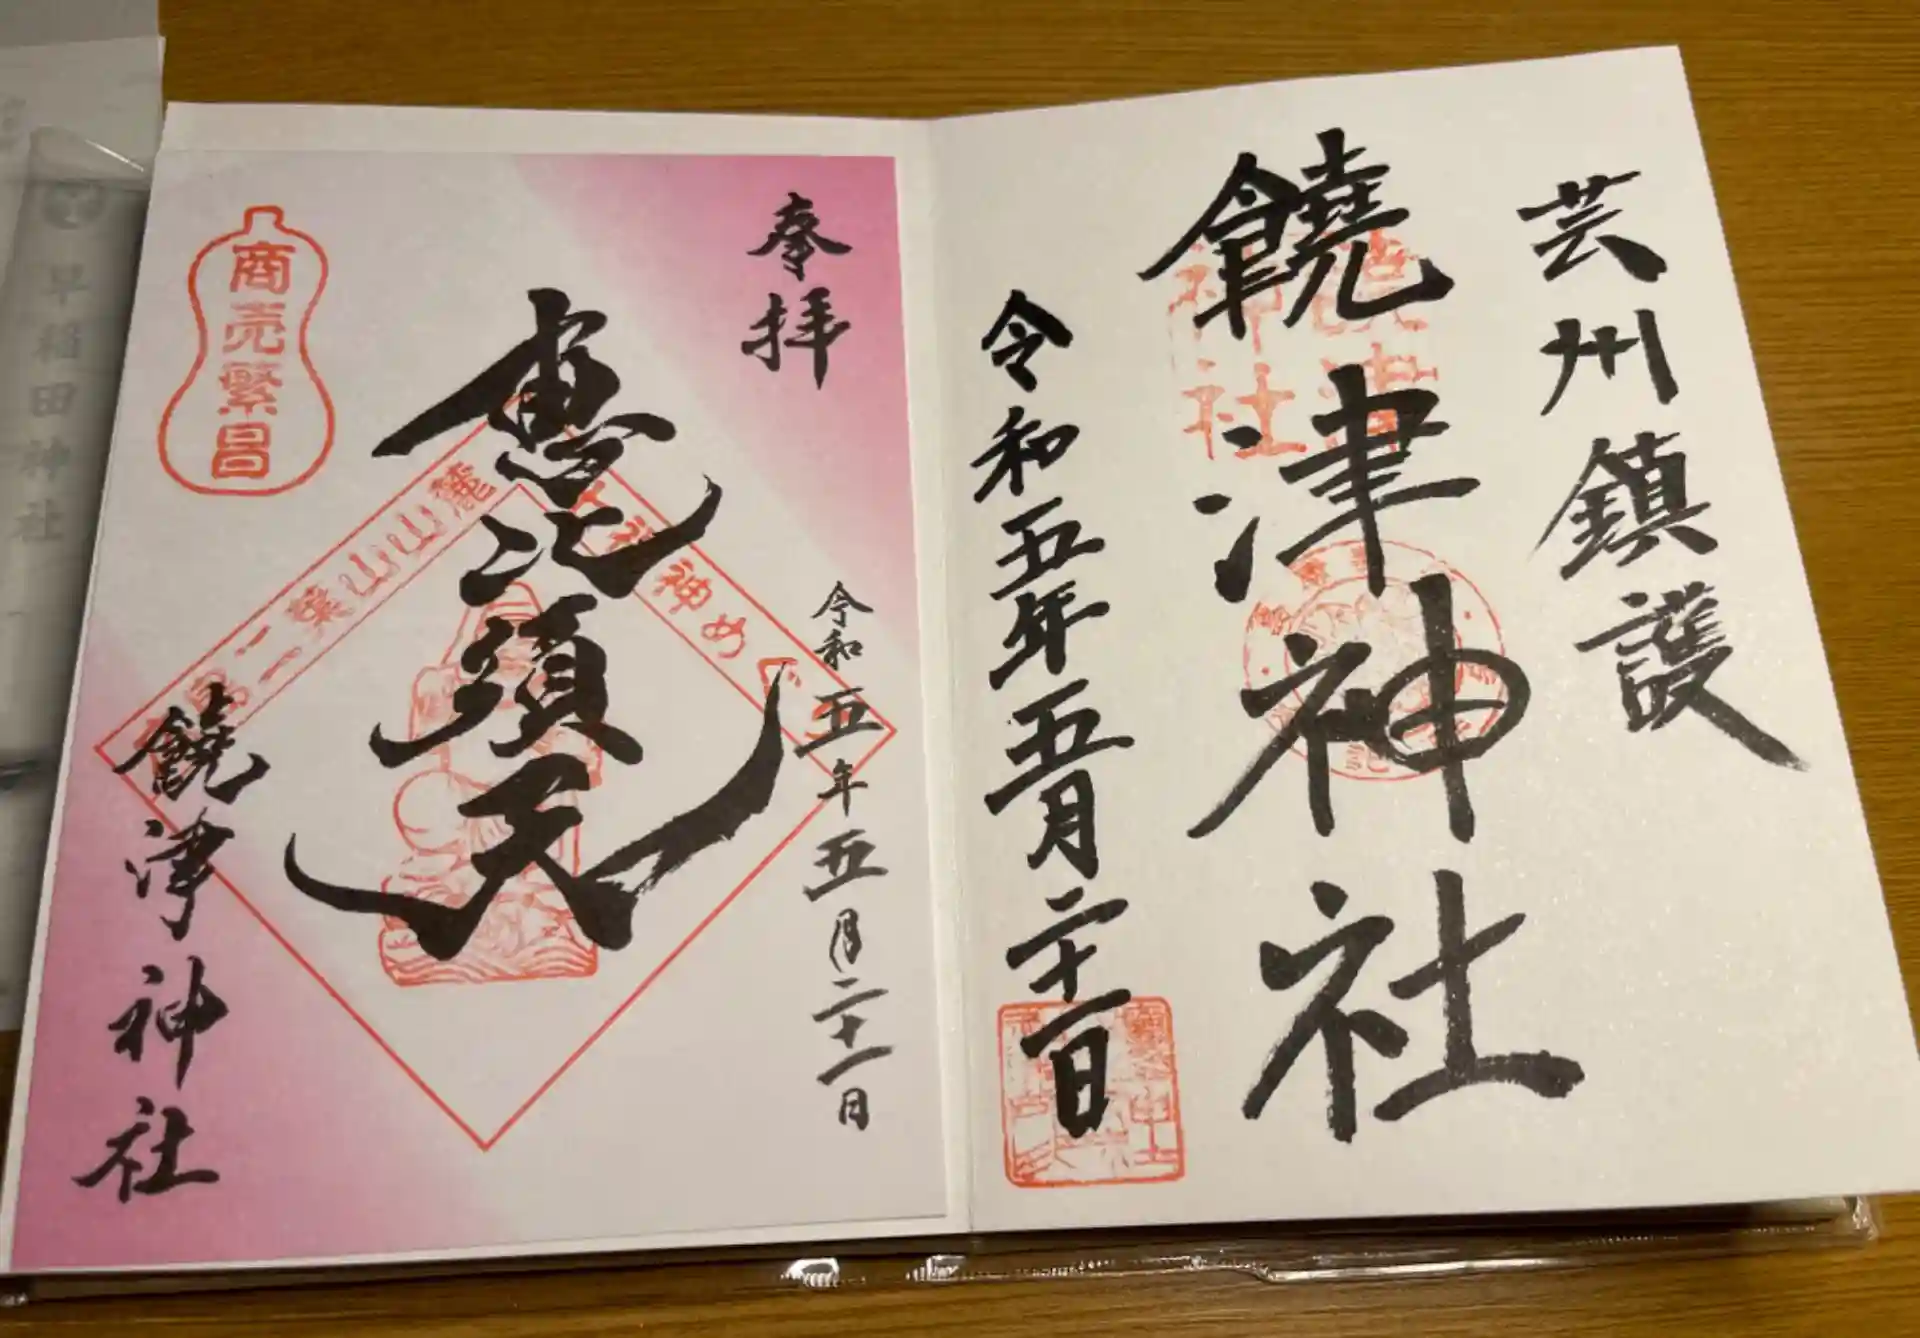 芸州鎮護
饒津神社
令和五年五月二十一日
奉拝
恵比須天
令和五年五月二十一日
商売繁昌
二葉山山麓
七福神めぐり
饒津神社
早稲田神社